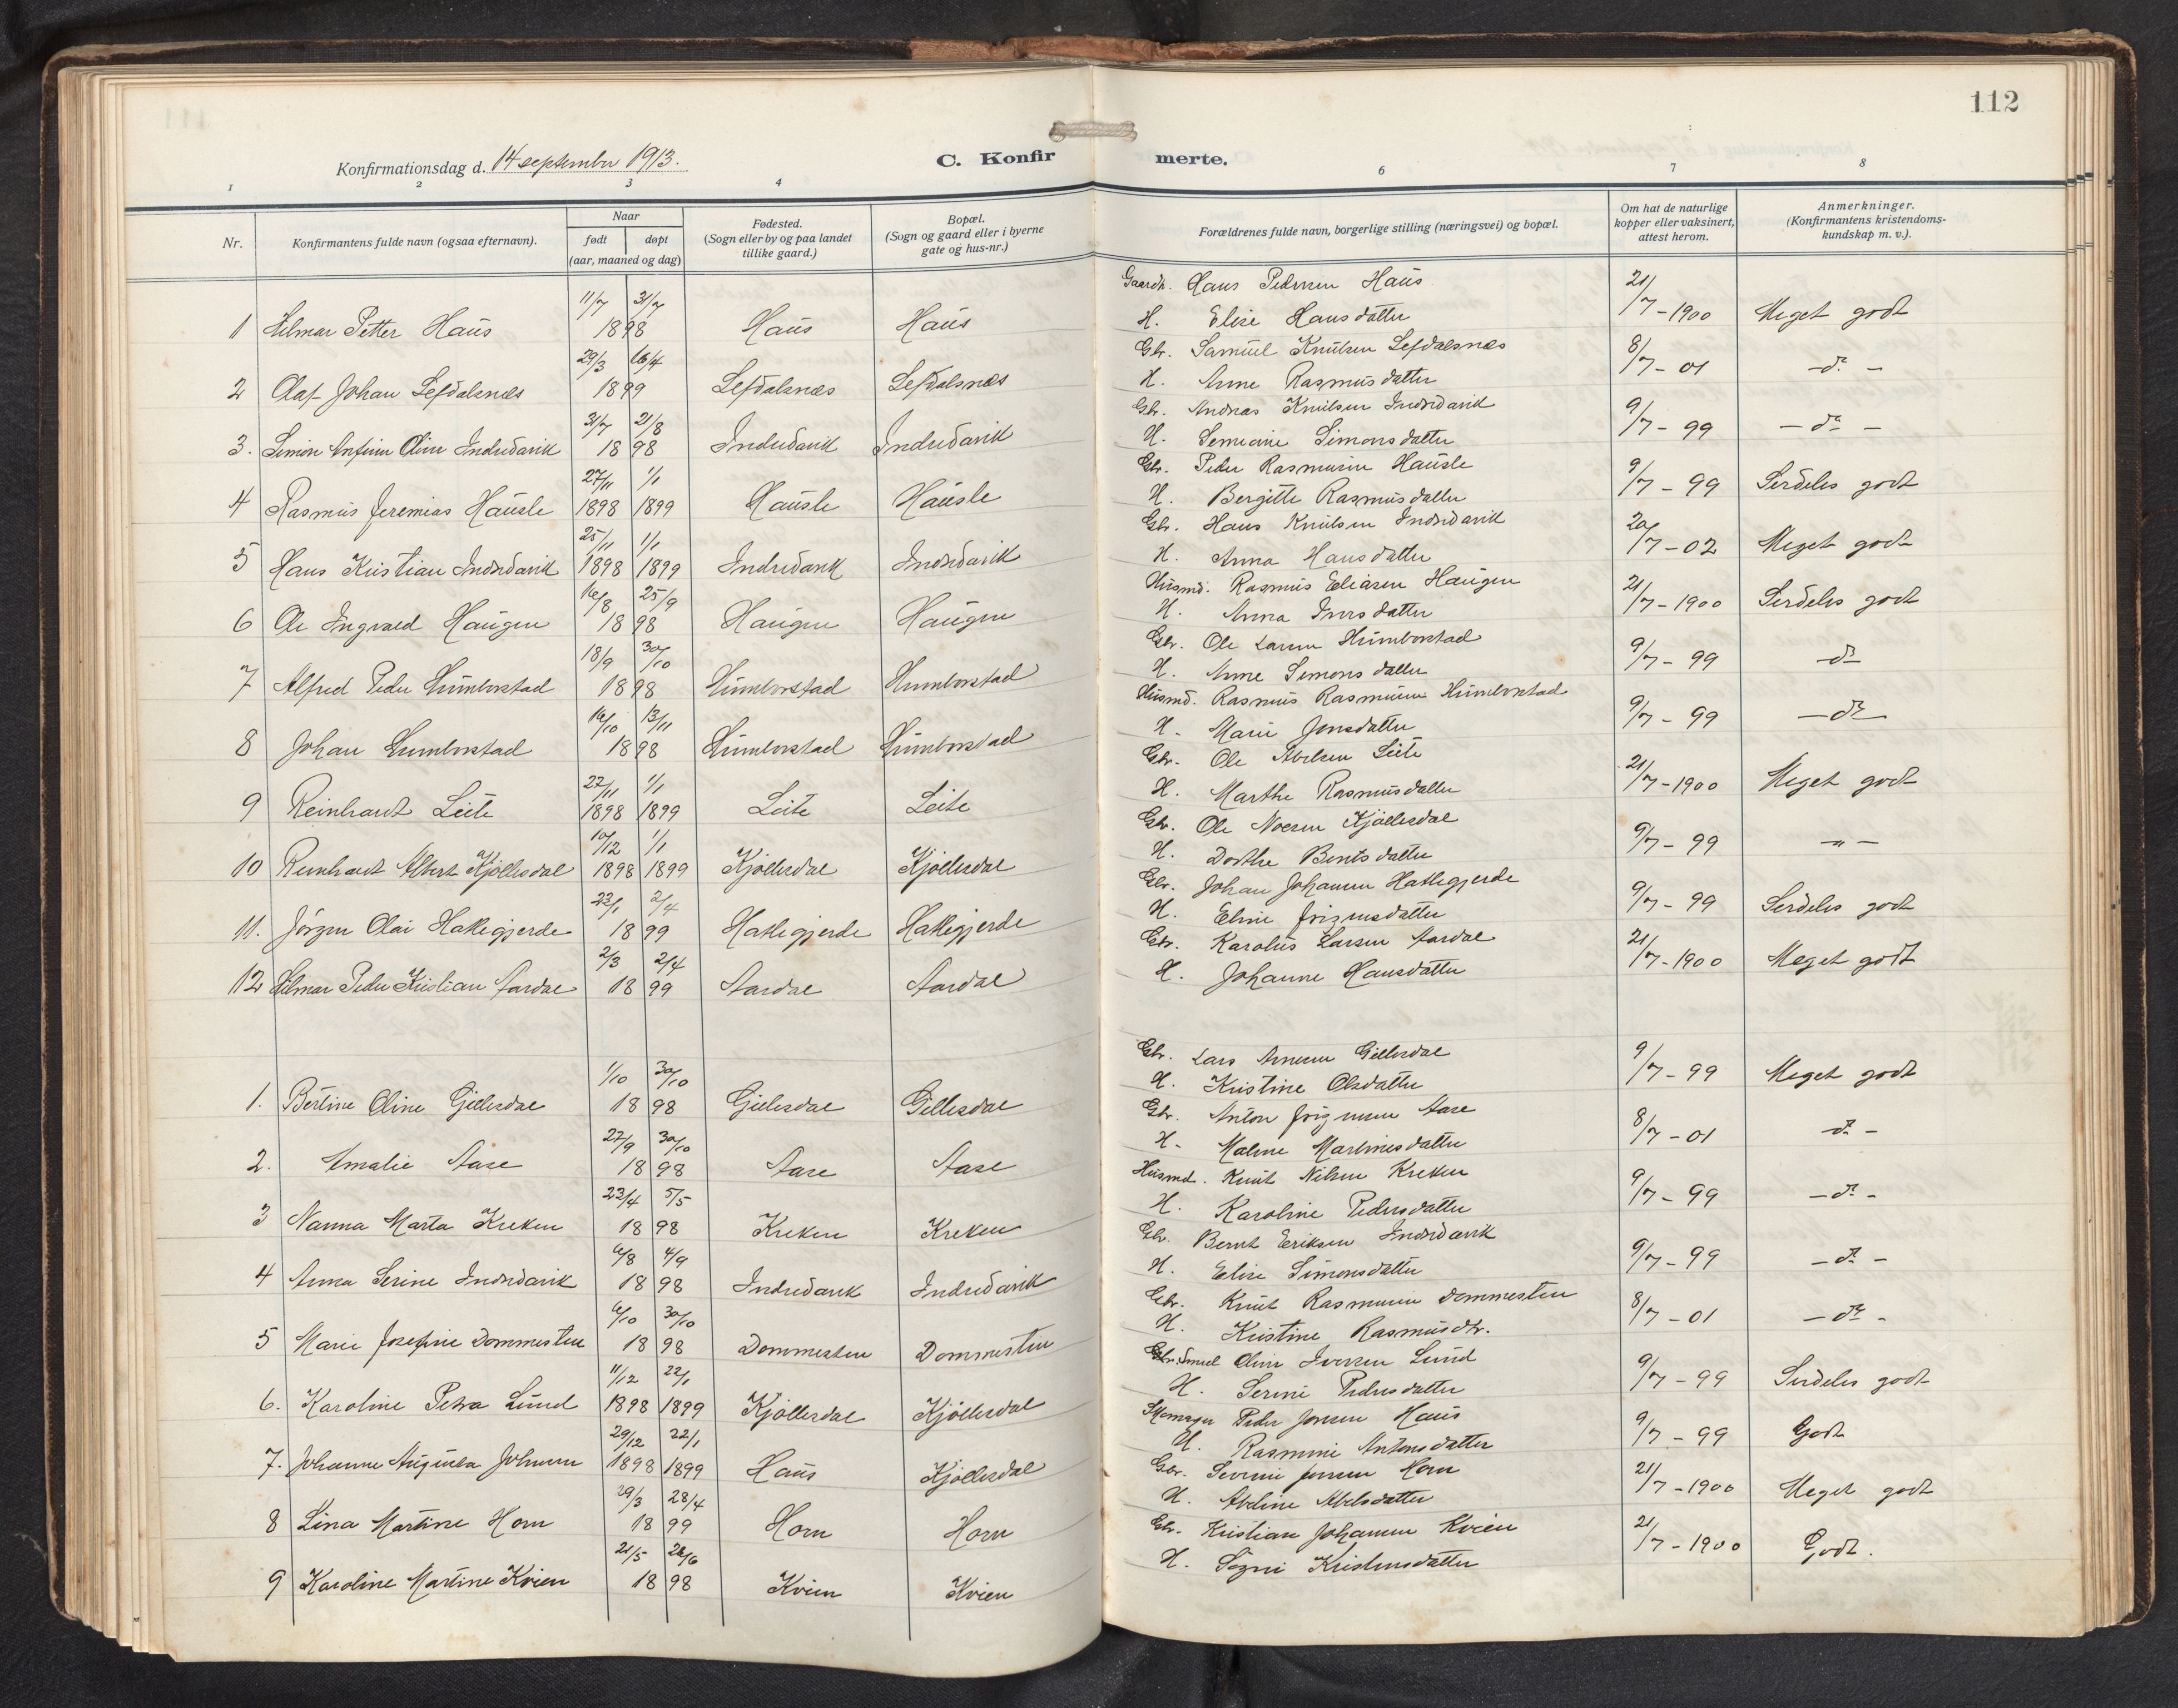 112
Konfirmationsdag d. 14 september 1913.
C. Konfirmerte.
1 2 3 4 6 7 8
Nr.
Konfirmantens fulde navn (ogsaa efternavn).
Naar
født døpt
(aar, maaned og dag)
Fødested.
(Sogn eller by og paa landet
tillike gaard.)
Bopæl.
(Sogn og gaard eller i byerne
gate og hus-nr.)
Forældrenes fulde navn, borgerlige stilling (næringsvei) og bopæl.
Om hat de naturlige
kopper eller vaksinert,
attest herom.
Anmerkninger.
(Konfirmantens kristendoms-
kundskap m. v.).
11/7 31/7 Gaardb. Hans Pedersen Haus 21/7-1900
1 Hilmar Petter Haus 1898 Haus Haus H. Elise Hansdatter Meget godt
29/3 16/4 Gbr. Samuel Knutsen Lefdalsnæs 8/7-01
2 Olaf Johan Lefdalsnæs 1899 Lefdalsnæs Lefdalsnæs H. Anne Rasmusdatter -d°-
31/7 21/8 Gbr. Andreas Knutsen Indredavik 9/7-99
3. Simon Oline Indredavik 1898 Indredavik Indredavik H. Simonsdatter -d°-
27/11 1/1 Gbr. Peder Rasmusen Hausle 9/7-99
4 Rasmus Jeremias Hausle 1898 1899 Hausle Hausle H. Bergitte Rasmusdatter Serdeles godt
25/11 1/1 Gbr. Hans Knutsen Indredavik 20/7-02
5 Hans Kristian Indredavik 1898 1899 Indredavik Indredavik H. Anna Hansdatter Meget godt
16/8 25/9 Husmd. Rasmus Eliasen Haugen 21/7-1900
6 Ole Ingvald Haugen 1898 Haugen Haugen H. Anna Iversdatter Serdeles godt
18/9 30/10 Gbr. Ole Larsen Humborstad 9/7-99
7 Alfred Peder Humborstad 1898 Humborstad Humborstad H. Anne Simonsdatter -d°-
16/10 13/11 Husmd. Rasmus Rasmusen Humborstad 9/7-99
8 Johan Humborstad 1898 Humborstad Humborstad H. Marie Jonsdatter -d°-
27/11 1/1 Gbr. Ole Abelsen Leite 21/7-1900
9 Reinhardt Leite 1898 1899 Leite Leite H. Marthe Rasmusdatter Meget godt
10/12 1/1 Gbr. Ole Kjøllesdal 9/7-99
10 Reinhardt Albert Kjøllesdal 1898 1899 Kjøllesdal Kjøllesdal H. Dorthe Bentsdatter -"-
22/1 2/4 Gbr. Johan Johansen Hatlegjerde 9/7-99
11. Jørgen Olai Hatlegjerde 1899 Hatlegjerde Hatlegjerde H. Eline Serdeles godt
2/3 2/4 Gbr. Karolus Larsen Aardal 21/7-1900
12 Hilmar Peder Kristian Aardal 1899 Aardal Aardal H. Johanne Hansdatter Meget godt
1/10 30/10 Gbr. Lars Arnesen Gillesdal 9/7-99
1. Bertine Oline Gillesdal 1898 Gillesdal Gillesdal H. Kristine Olsdatter Meget godt
27/9 30/10 Gbr. Anton Aase 8/7-01
2. Amalie Aase 1898 Aase Aase H. Malene Martinusdatter -d°-
23/4 5/5 Husmd. Knut Nilsen Kreken 9/7-99
3 Nanna Marta Kreken 1898 Kreken Kreken H. Karoline Pedersdatter -d°-
6/8 4/9 Gbr. Bernt Eriksen Indredavik 9/7-99
4 Anna Serine Indredavik 1898 Indredavik Indredavik H. Elise Simonsdatter -d°-
6/10 30/10 Gbr. Knut Rasmusen Dommesten 8/7-01
5 Marie Josefine Dommesten 1898 Dommesten Dommesten H. Kristine Rasmusdtr. -d°-
11/12 22/1 Iversen Lund 9/7-99
6. Karoline Petra Lund 1898 1899 Kjøllesdal Kjøllesdal H. Serine Pedersdatter Serdeles godt
29/12 22/1 Skomager Peder Jonsen Haus 9/7-99
7. Johanne Augusta Johnsen 1898 1899 Haus Kjøllesdal H. Rasmine Antonsdatter Godt
29/3 23/4 Gbr. Severin Jonsen Horn 21/7-1900
8 Lina Martine Horn 1899 Horn Horn H. Abeline Abelsdatter Meget godt
21/5 26/6 Gbr. Kristian Johansen Kvien 21/7-1900
9 Karoline Martine Kvien 1898 Kvien Kvien H. Kristensdatter Godt.